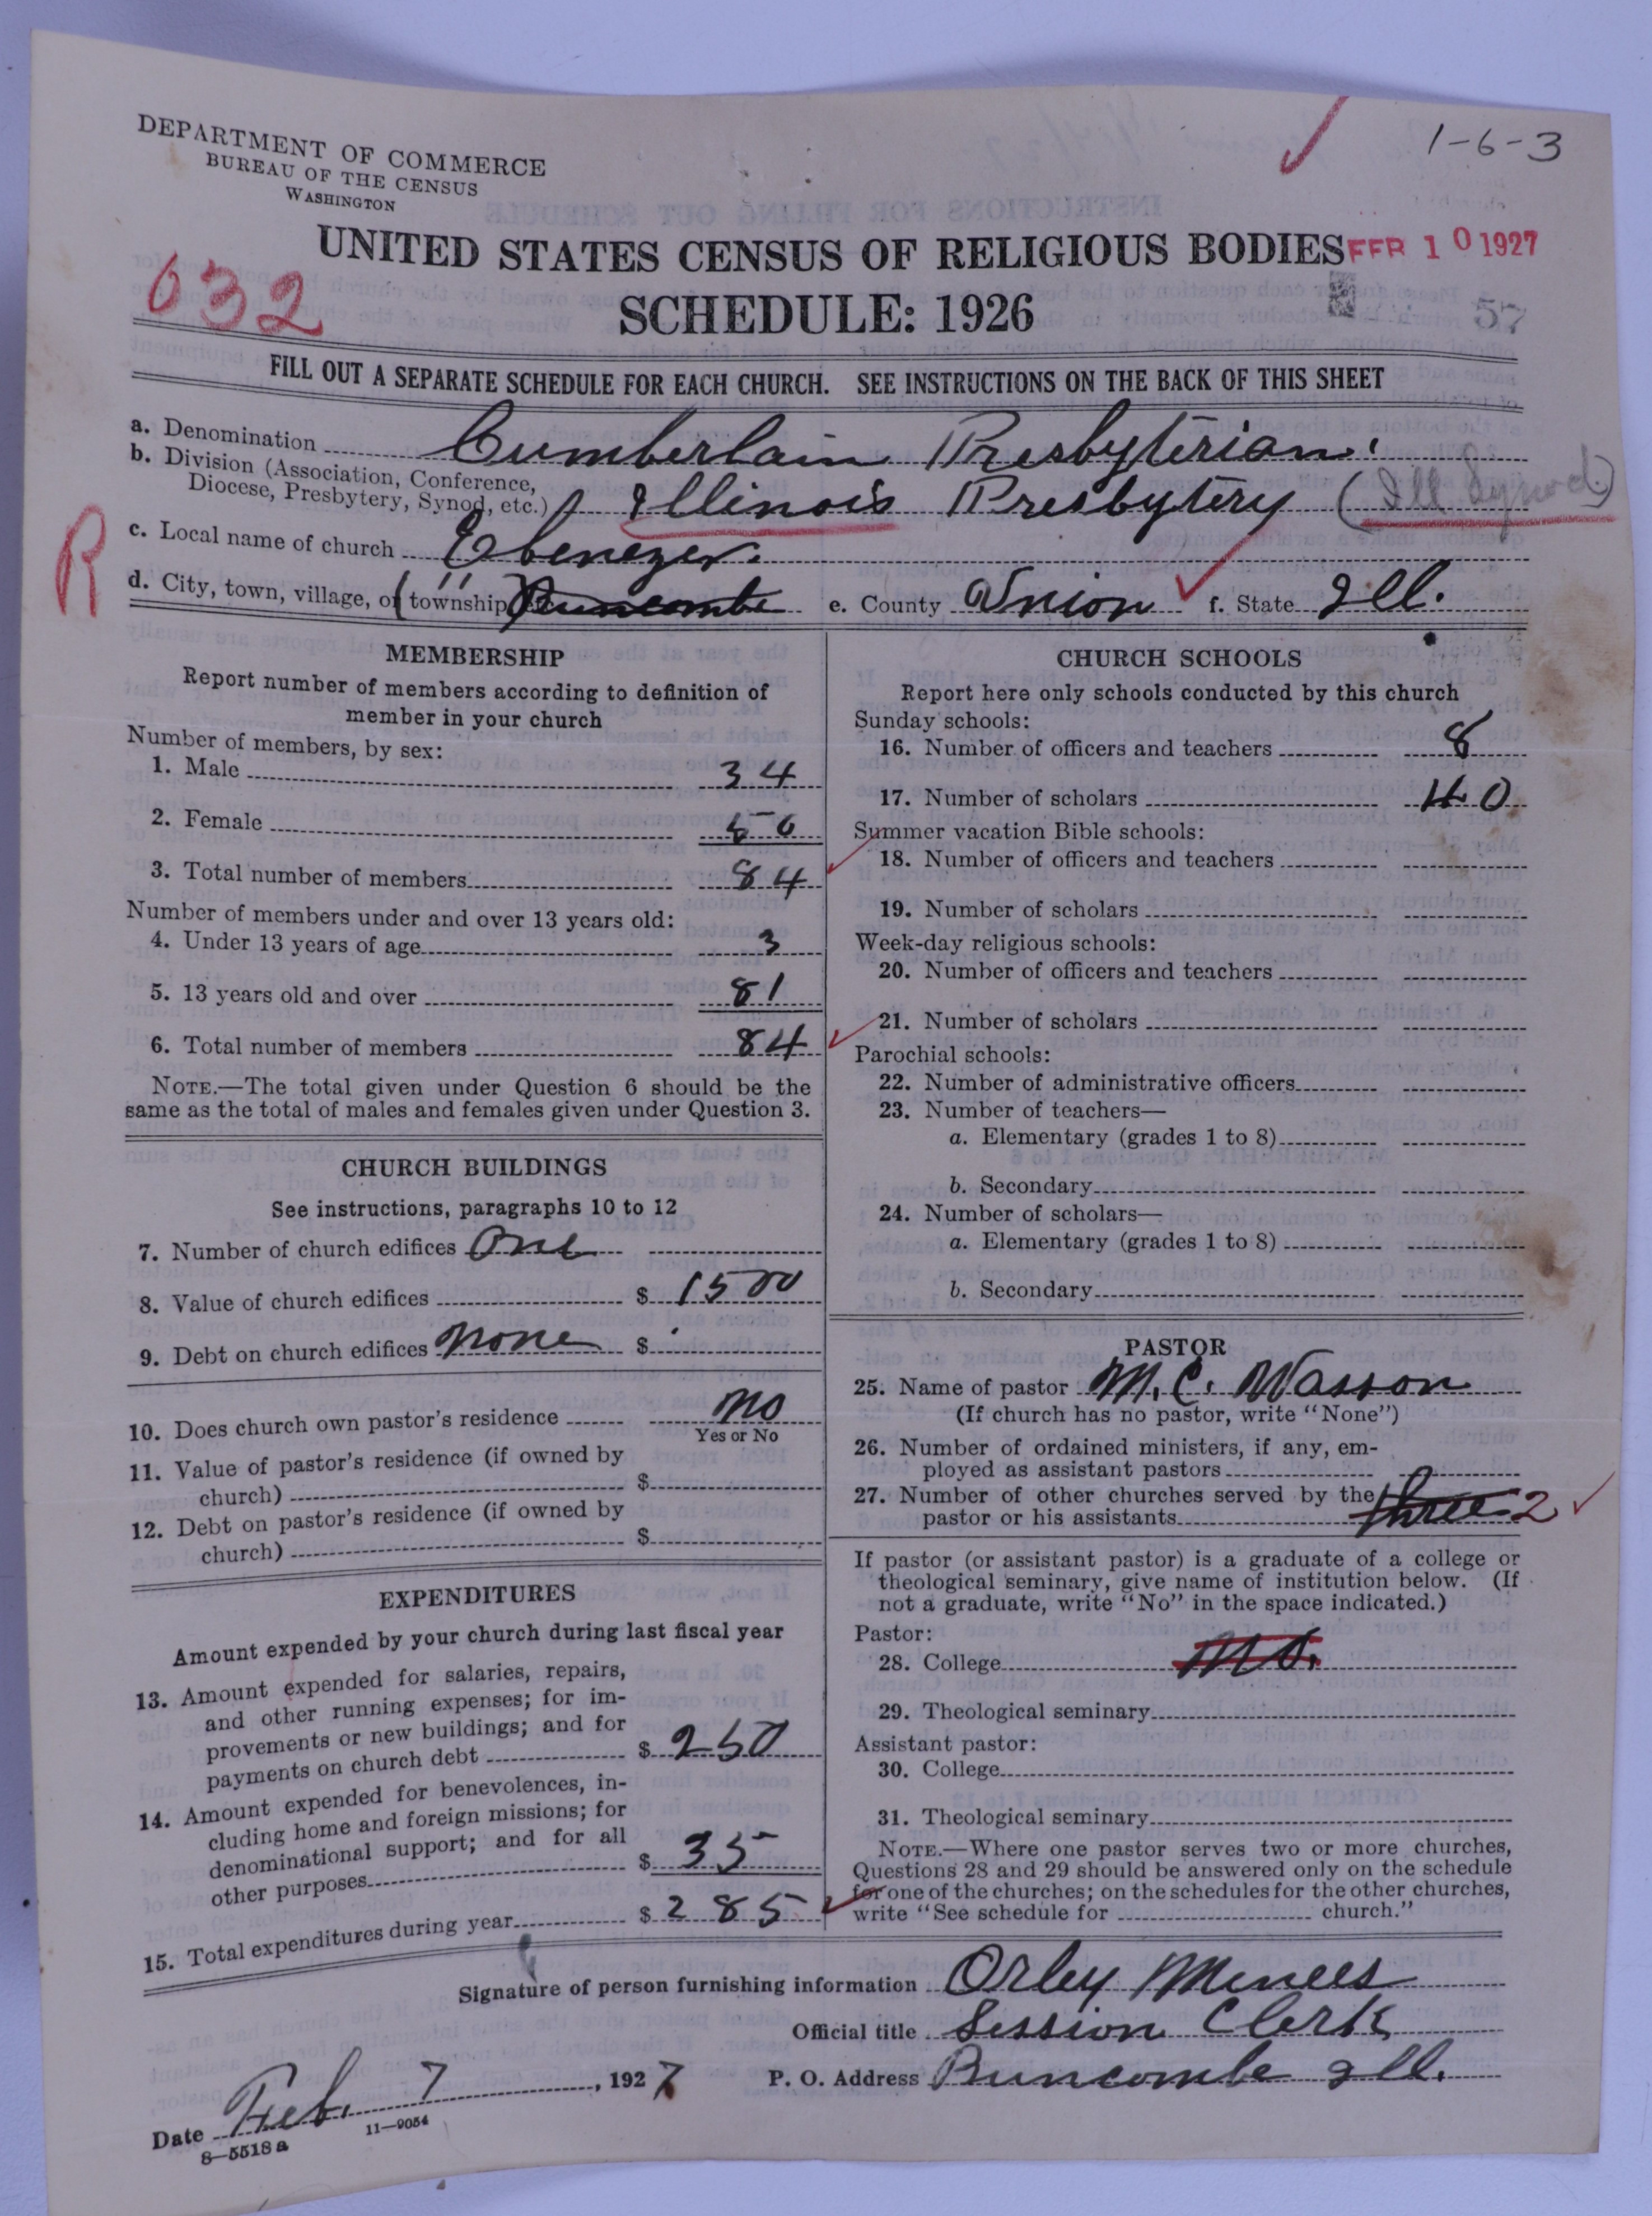 DEPARTMENT OF COMMERCE
BUREAU OF THE CENSUS
WASHINGTON
1-6-3
UNITED STATES CENSUS OF RELIGIOUS BODIES
FEB 10 1927
632
SCHEDULE: 1926
57
FILL OUT A SEPARATE SCHEDULE FOR EACH CHURCH. SEE INSTRUCTIONS ON THE BACK OF THIS SHEET
a. Denomination Cumberlain Presbyterian.
b. Division (Association, Conference, Diocese, Presbytery, Synod, etc.) Illinois Presbytery (Ill Synod)
R
c. Local name of church Ebenezer.
d. City, town, village, or (township) " Buncombe e. County Union f. State Ill.
MEMBERSHIP
Report number of members according to definition of
member in your church
Number of members, by sex:
1. Male 34
2. Female 50
3. Total number of members 84
Number of members under and over 13 years old:
4. Under 13 years of age 3
5. 13 years old and over 81
6. Total number of members 84
NOTE.—The total given under Question 6 should be the
same as the total of males and females given under Question 3.
CHURCH BUILDINGS
See instructions, paragraphs 10 to 12
7. Number of church edifices One
8. Value of church edifices $ 1500
9. Debt on church edifices None $
10. Does church own pastor's residence No
Yes or No
11. Value of pastor's residence (if owned by
church) $
12. Debt on pastor's residence (if owned by
church) $
EXPENDITURES
Amount expended by your church during last fiscal year
13. Amount expended for salaries, repairs,
and other running expenses; for im-
provements or new buildings; and for
payments on church debt $ 250
14. Amount expended for benevolences, in-
cluding home and foreign missions; for
denominational support; and for all
other purposes $ 35
15. Total expenditures during year $ 285
CHURCH SCHOOLS
Report here only schools conducted by this church
Sunday schools:
16. Number of officers and teachers 8
17. Number of scholars 40
Summer vacation Bible schools:
18. Number of officers and teachers
19. Number of scholars
Week-day religious schools:
20. Number of officers and teachers
21. Number of scholars
Parochial schools:
22. Number of administrative officers
23. Number of teachers—
a. Elementary (grades 1 to 8)
b. Secondary
24. Number of scholars—
a. Elementary (grades 1 to 8)
b. Secondary
PASTOR
25. Name of pastor M. C. Wasson
(If church has no pastor, write "None")
26. Number of ordained ministers, if any, em-
ployed as assistant pastors
27. Number of other churches served by the
pastor or his assistants three 2
If pastor (or assistant pastor) is a graduate of a college or
theological seminary, give name of institution below. (If
not a graduate, write "No" in the space indicated.)
Pastor:
28. College No.
29. Theological seminary
Assistant pastor:
30. College
31. Theological seminary
NOTE.—Where one pastor serves two or more churches,
Questions 28 and 29 should be answered only on the schedule
for one of the churches; on the schedules for the other churches,
write "See schedule for church."
Signature of person furnishing information Orley Minees
Official title Session Clerk
Date Feb. 7, 1927 P. O. Address Buncombe Ill.
8—5518a 11—9054